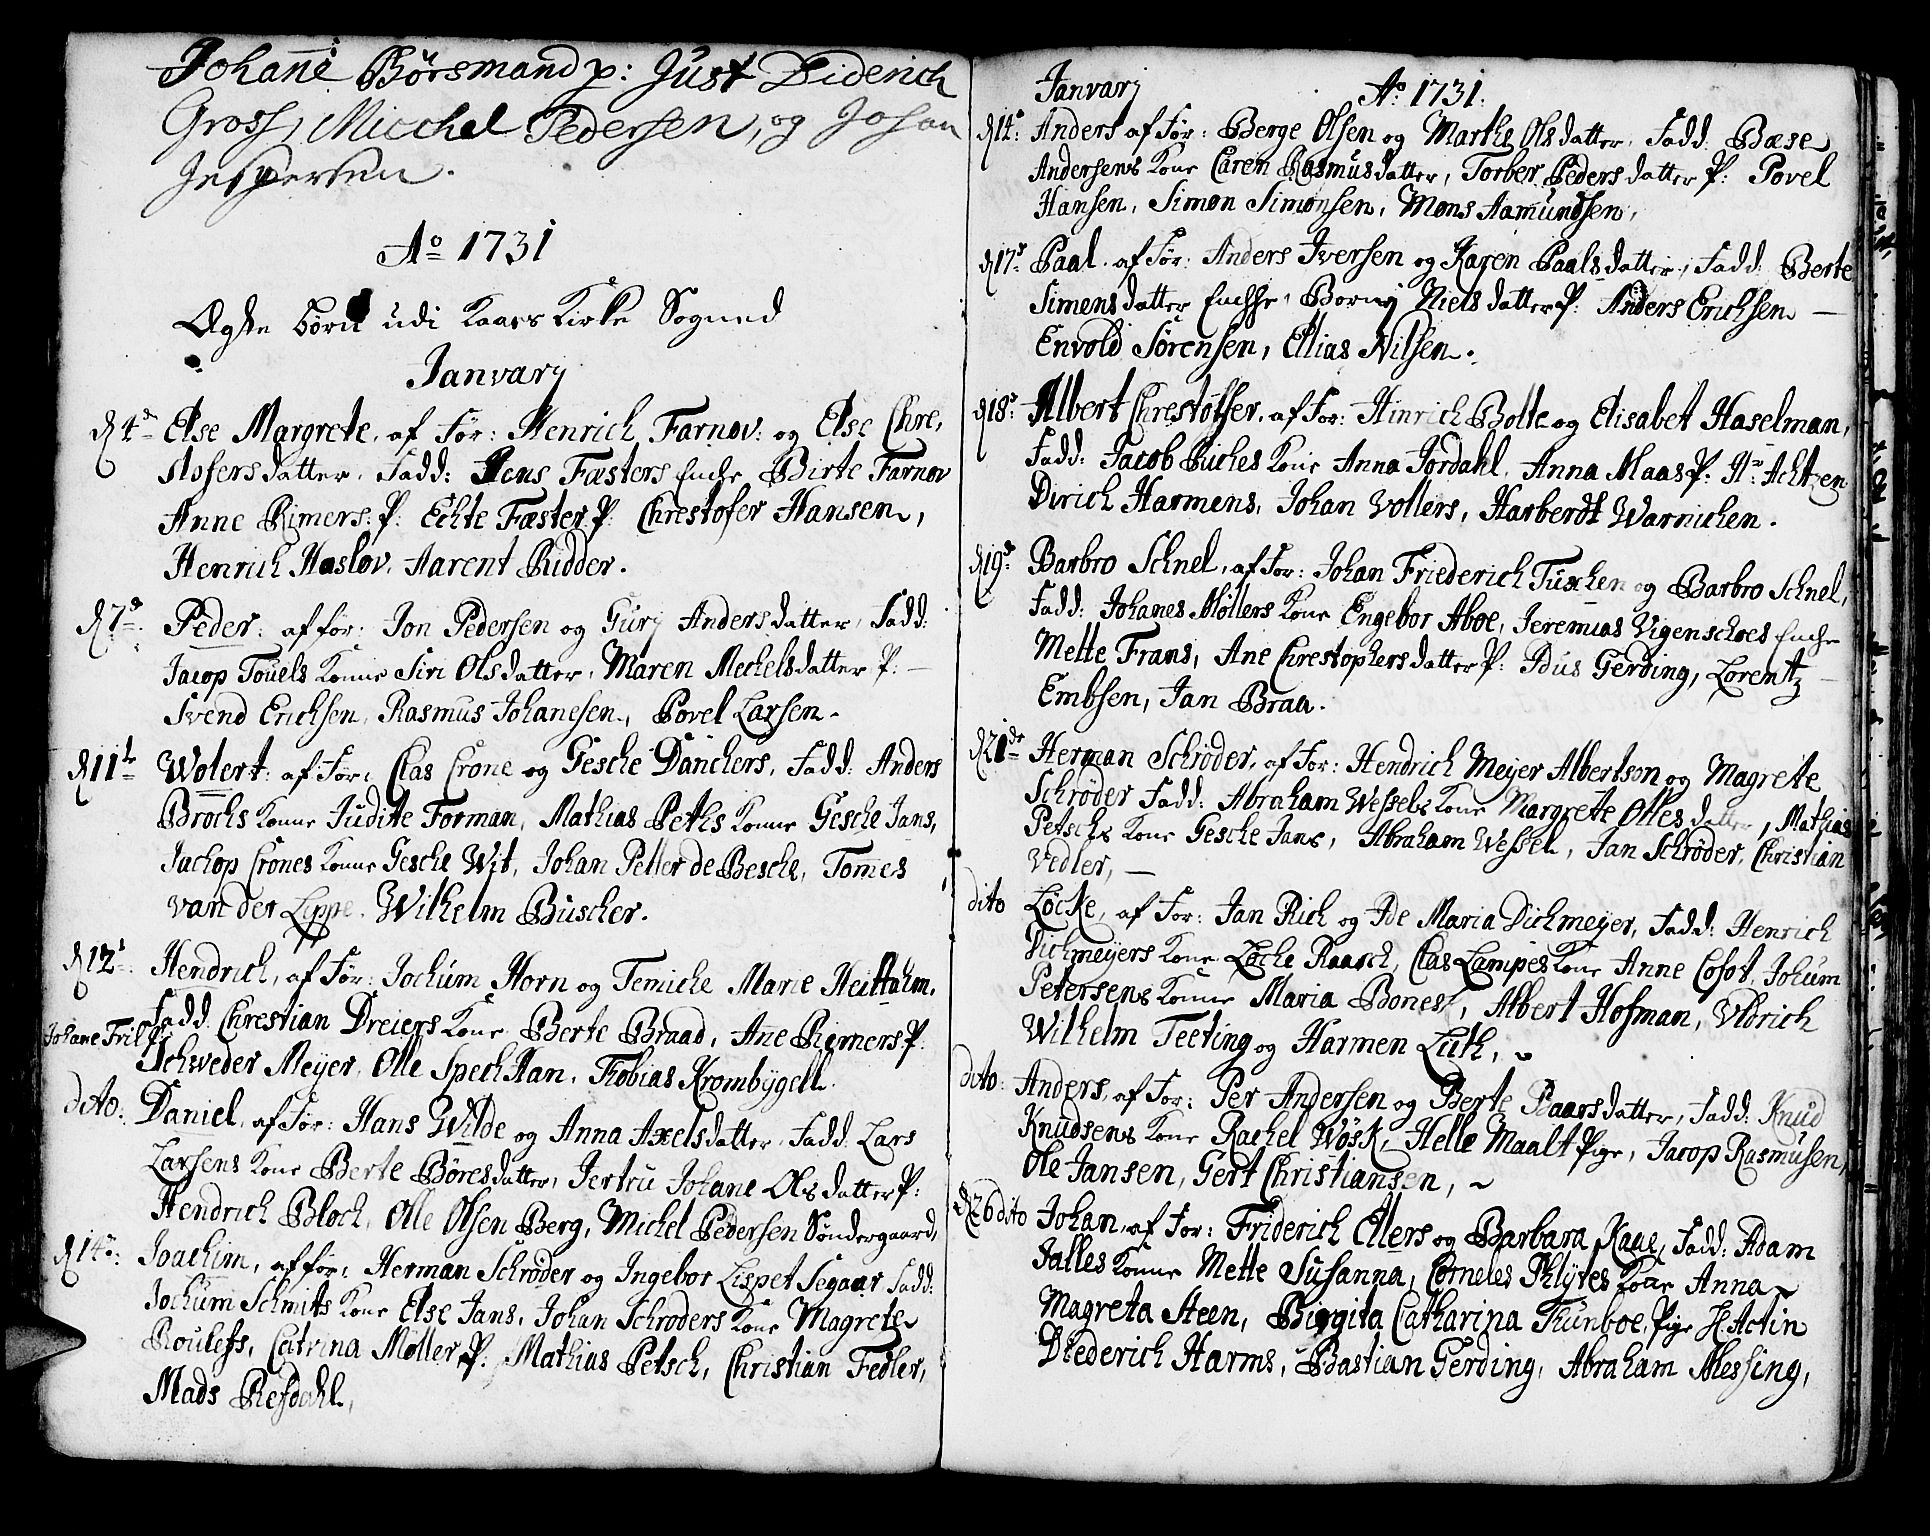 Johane Børsmand p: Just Diderich
Gross, Micchel Pedersen, og Johan
Jespersen.
Ao 1731
Ægte børn udi Kaars Kirke Sogned
Januarij
d 4de Else Margrete, af For: Henrich Farnov: og Else Chre,
Stofersdatter, Fadd: Jens Fæsters Enche Birte Farnov
Anne Rimers: P: Echte Fæster P: Chrestofer Hansen,
Henrich Haslov, Aarent Ridder.
d 7de: Peder: af for: Jon Pedersen og Gurj Andersdatter, Fadd:
Jacop Touels Konne Siri Olsdatter, Maren Mechelsdatter P: —
Svend Erichsen, Rasmus Johanesen, Povel Larsen.
d 11te Wolert: af For: Clas Crone og Gesche Danchers, Fadd: Anders
Brochs Konne Judite Forman, Mathias Peths Konne Gesche Jans,
Jachop Crones Konne Gesche Wit, Johan Petter de Besche, Tomes
van der Lippe, Wilhelm Buscher.
d 12t: Hendrich, af For: Jochum Horn og Temiche Marie Heittahm.
Fadd: Chrestian Dreiers Kone Berte Braad, Ane Rimers P:
Johane Fril P:
Schweder Meyer, Olle Spech Han, Tobias Krombygell.
dito: Daniel, af For: Hans Wilde og Anna Axelsdatter, Fadd: Lars
Larsens Kone Berte Børesdatter, Jertru Johane Olsdatter P:
Hendrich Bloch, Olle Olsen Berg, Michel Pedersen Søndergaard,
d 14de: Joachim, af for: Herman Schrøder og Ingebor Lispet Segaar Fadd:
Jochum Schmits Kone Else Jans, Johan Schroders Kone Magrete
Roulefs, Catrina Møller P: Mathias Petsch, Christian Fedler,
Mads Refsdahl,
Januarij Ao 1731.
d 12t: Anders af For: Berge Olsen og Marthe Olsdatter, Fadd: Bæse
Andersens Kone Caren Rasmusdatter, Torber Pedersdatter P: Povel
Hansen, Simon Simonsen, Mons Aamundsen,
d 17de Paal. af For: Anders Iversen og Karen Paalsdatter, Fadd: Berte
Simensdatter Enche, Bornij Nielsdatter P: Anders Erichsen —
Envold Sørensen, Ellias Nilsen.
d 18de: Albert Chrestoffer, af For: Hinrich Bolte og Elisabet Haselman,
Fadd: Jacob Buches Kone Anna Jordahl, Anna Maas P: Hr Achtzen
Dirich Harmens, Johan Vollers, Harberdt Warnichen.
d 19de: Barbro Schnel, af For: Johan Friederich Tuschen og Barbro Schnel,
Fadd: Johanes Møllers Kone Engebor Aboe, Jeremias Vigenschoes Enche
Mette Frans, Ane Chrestophersdatter P: Idus Gerding, Lorentz —
Embsen, Jan Braa.
d 21de Herman Schrøder, af For: Hendrich Meyer Albertson og Magrete
Schrøder Fadd: Abraham Wessels Kone Margrete Ollesdatter, Mathias
Petschs Kone Gesche Jans, Abraham Wessel, Jan Schrøder, Christian
Vedler, —
dito Løcke, af For: Jan Rich og Ide Maria Dichmeyer, Fadd: Henrich
Dichmeyers Kone Løche Raasch, Clas Lampes Kone Anne Cosot, Johum
Petersens Konne Maria Bones, Albert Hofman, Uldrich
Wilhelm Teeting og Harmen Luth,
dito: Anders, af For: Per Andersen og Berte Paarsdatter, Fadd: Knud
Knudsens Kone Rachel Wøsk, Helle Maalt Pige, Jacop Rasmusen,
Ole Jansen, Gert Christiansen,
d 26 dito Johan, af For: Friderich Ellers og Barbara Kaae, Fadd: Adam
Jalles Konne Mette Susanna, Corneles Phlytes Kone Anna
Magreta Steen, Birgita Catharina Tunboe, Pige H Actin
Diederich Harms, Bastian Gerding, Abraham Messing,